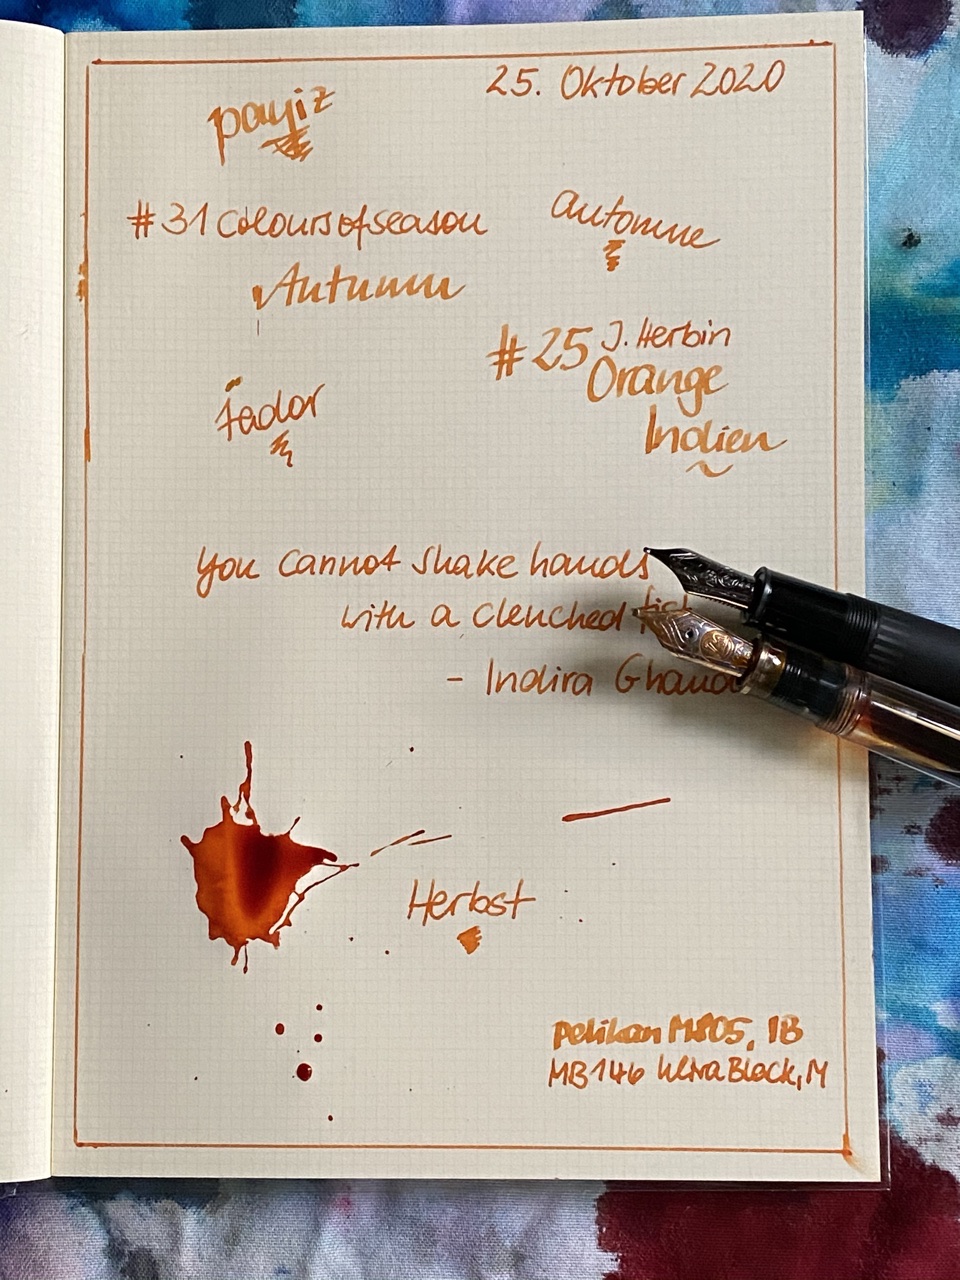 25. Oktober 2020
payiz
#31 Coloursofseason
automne
Autumn
#25 J. Herbin
Orange
Indien
You cannot shake hands
with a clenched fist
- Indira Ghand
Herbst
Pelikan M805, IB
MB146 Ultra Black, M